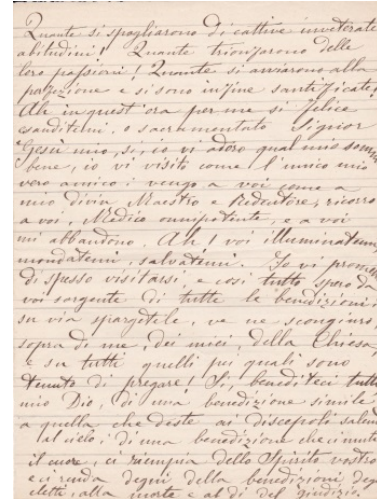 Quante si spogliarono di cattive inveterate
abitudini! Quante trionfarono delle
loro passioni! Quante si avviarono alla
perfezione e si sono infine santificate!
Ah in quest'ora per me sì felice
esauditemi, o sacramentato Signor
Gesù mio, sì, io vi adoro qual mio sommo
bene, io vi visito come l'unico mio
vero amico; vengo a voi come a
mio divin Maestro e Redentore, ricorro
a voi, Medico onnipotente, e a voi
mi abbandono. Ah! voi illuminatemi,
mondatemi, salvatemi. Io vi prometto
di spesso visitarvi, e così tutto spero da
voi sorgente di tutte le benedizioni,
su via spargetele, ve ne scongiuro,
sopra di me, dei miei, della Chiesa,
e su tutti quelli pei quali sono
tenuto di pregare! Sì, benediteci tutti
mio Dio, di una benedizione simile
a quella che deste ai discepoli salendo
al cielo; di una benedizione che ci mute
il cuore, ci riempia dello Spirito vostro
e ci renda degni della benedizioni degli
eletti alla morte e al dì del giudizio.